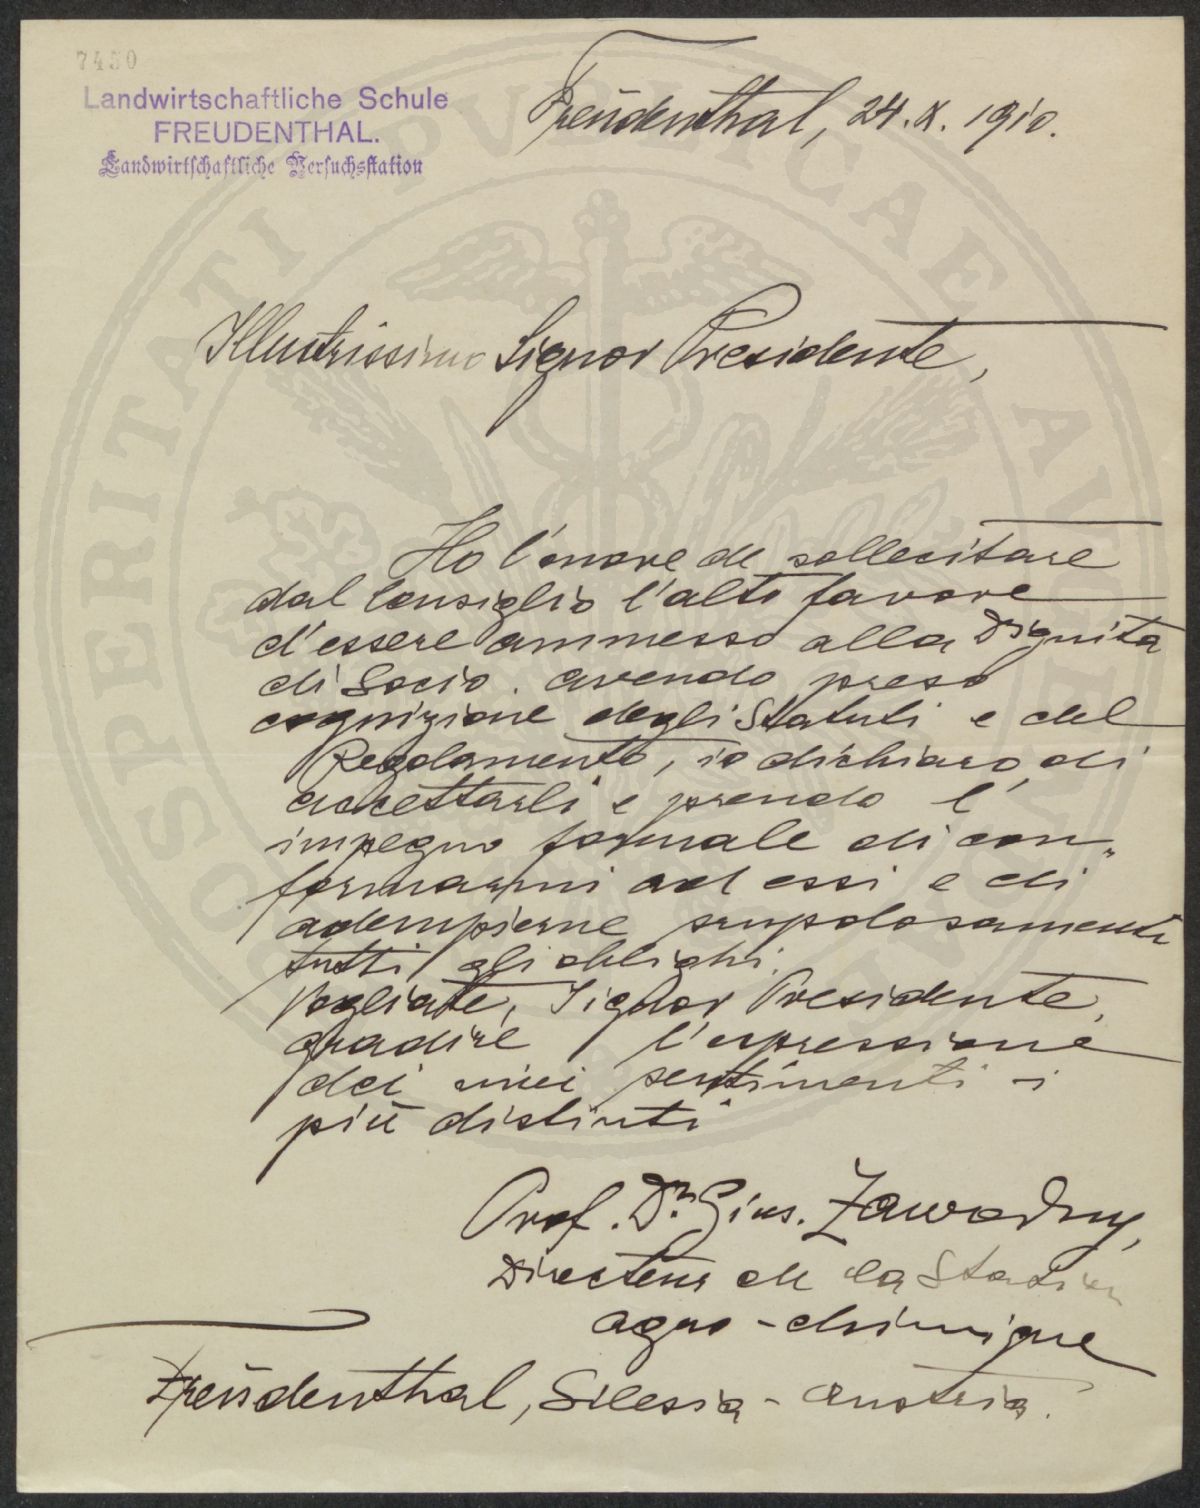 7450
Landwirtschaftliche Schule
FREUDENTHAL.
Landwirtschaftliche Versuchsstation
Freudenthal, 24. X. 1910.
Illustrissimo Signor Presidente,
Ho l'onore di sollecitare
dal Consiglio l'alto favore
d'essere ammesso alla Dignita
di Socio. avendo preso
cognizione degli Statuti e del
Regolamento, io dichiaro di
accettarli e prendo l'
impegno formale di con-
formarmi ad essi e di
adempierne scrupolosamente
tutti gli oblighi.
Vogliate, Signor Presidente,
gradire l'espressione
dei miei sentimenti i
più distinti
Prof. Dr. Gius. Zawodny,
Directeur de la Station
agro-chimique
Freudenthal, Silesia - Austria.